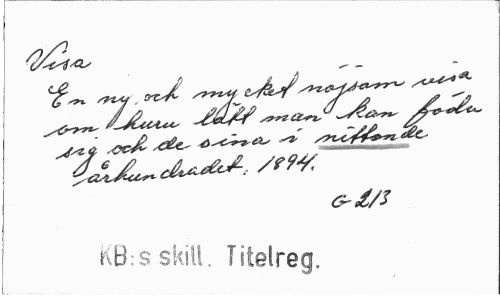 Visa
En ny och mycket nöjsam visa
om huru lätt man kan föda
sig och de sina i nittonde
århundradet. 1894.
G 213
KB:s skill. Titelreg.